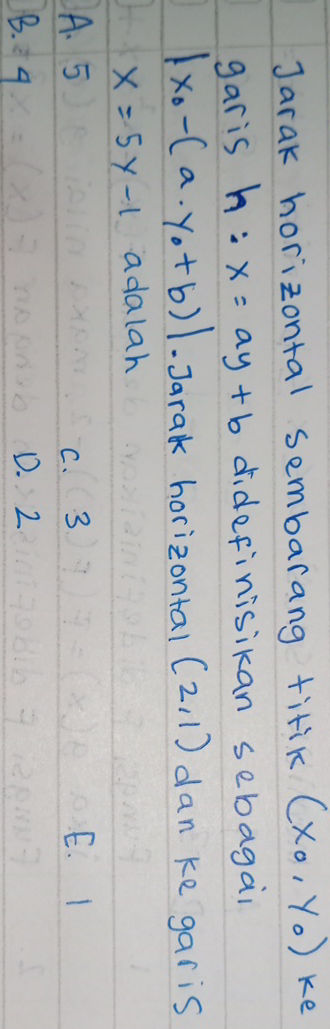 Jarak horizontal sembarang titik (x₀, y₀) ke
garis h : x = ay + b didefinisikan sebagai
|x₀ - (a . y₀ + b)|. Jarak horizontal (2,1) dan ke garis
x = 5y - 1 adalah
A. 5 C. 3 E. 1
B. 4 D. 2